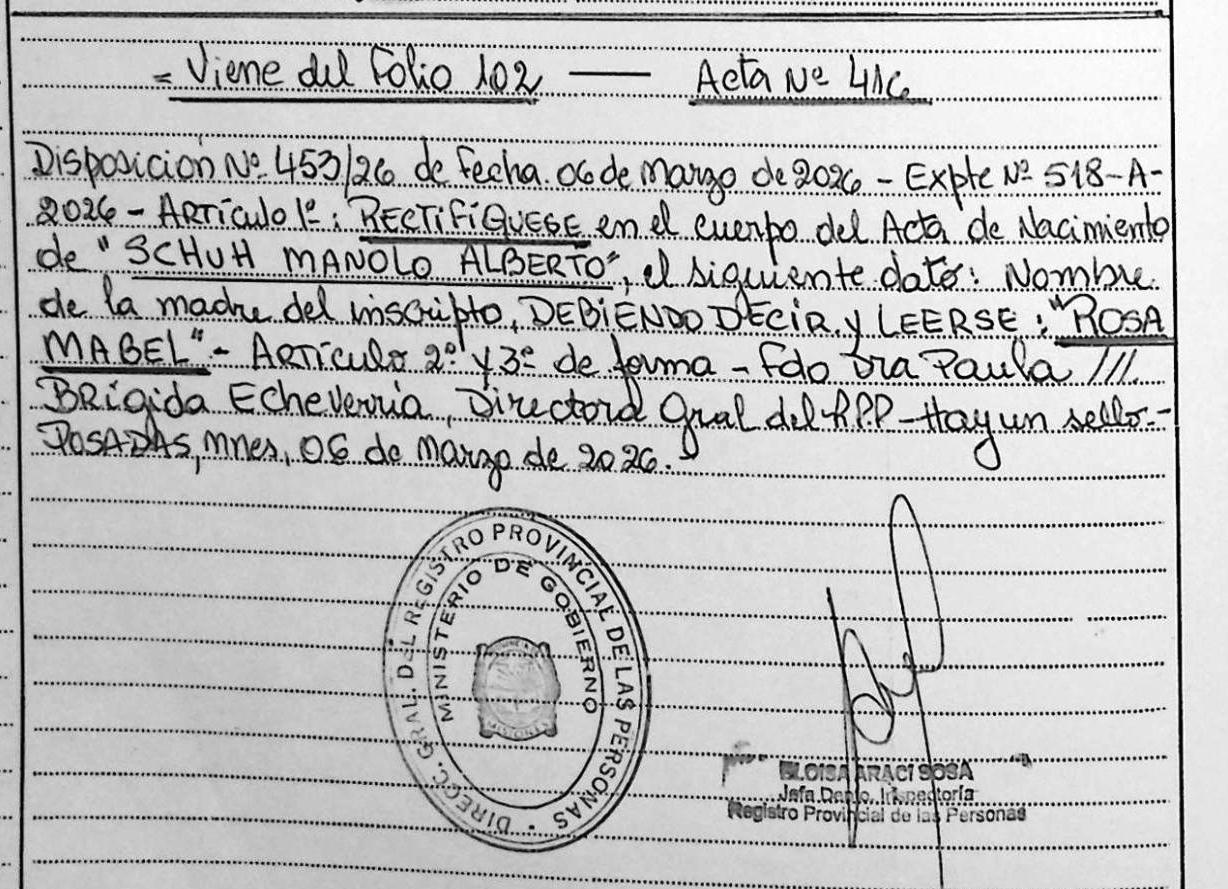 = Viene del Folio 102 — Acta Nº 416
Disposición Nº 453/26 de fecha. 06 de Marzo de 2026 - Expte Nº 518-A-
2026 - Artículo 1º: RECTIFÍQUESE en el cuerpo del Acta de Nacimiento
de "SCHUH MANOLO ALBERTO", el siguiente dato: Nombre.
de la madre del inscripto, DEBIENDO DECIR y LEERSE: "ROSA
MABEL" - Artículo 2º y 3º de forma - Fdo Dra Paula ///.
Brígida Echeverría, Directora Gral del R.P.P - Hay un sello.-
POSADAS, Mnes, 06 de Marzo de 2026.
DIRECC. GRAL. DEL REGISTRO PROVINCIAL DE LAS PERSONAS
MINISTERIO DE GOBIERNO
MISIONES
ELOISA ARACI SOSA
Jefa Depto. Inspectoría
Registro Provincial de las Personas